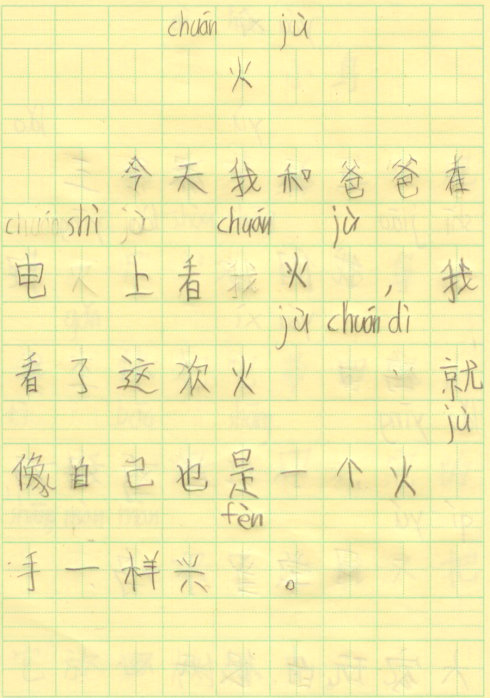 chuán jù
火
今天我和爸爸在
shì chuán jù
电 上看 火 ，我
jù chuán dì
看了这次火 就
jù
像自己也是一个火
fèn
手一样兴 。